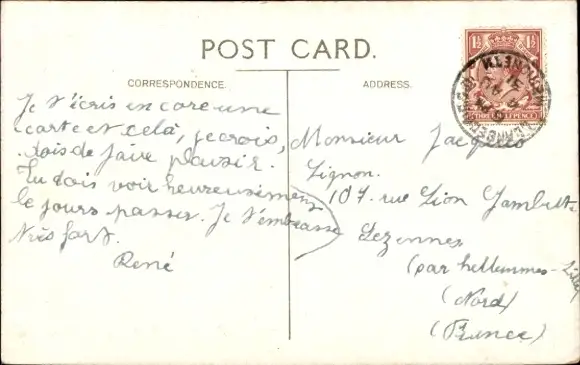 POST CARD.
CORRESPONDENCE.
ADDRESS.
Je t'écris encore une
carte et celà, je crois,
dois de faire plaisir.
Tu dois voir heureusement
le jours passer. Je t'embrasse
très fort.
René
Monsieur Jacques
Lignon.
107. rue Léon Gambetta
Lezennes
(par hellemmes-Lille)
(Nord)
(France)
1½ 1½
THREE HALF PENCE